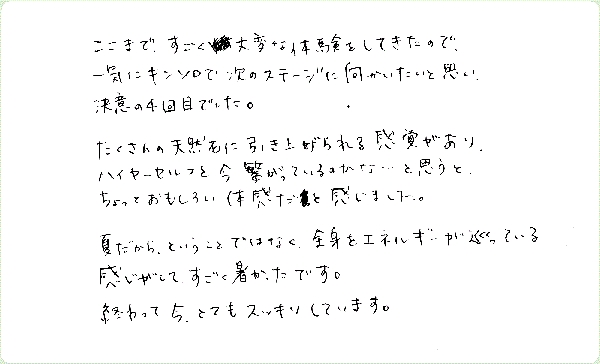 ここまで、すごく大変な体験をしてきたので、
一気にキンソロで次のステージに向かいたいと思い、
決意の4回目でした。
たくさんの天然石に引き上げられる感覚があり、
ハイヤーセルフと今繋がっているのかな…と思うと、
ちょっとおもしろい体感だと感じました。
夏だから、ということではなく、全身をエネルギーが巡っている
感じがして、すごく暑かったです。
終わって今、とてもスッキリしています。